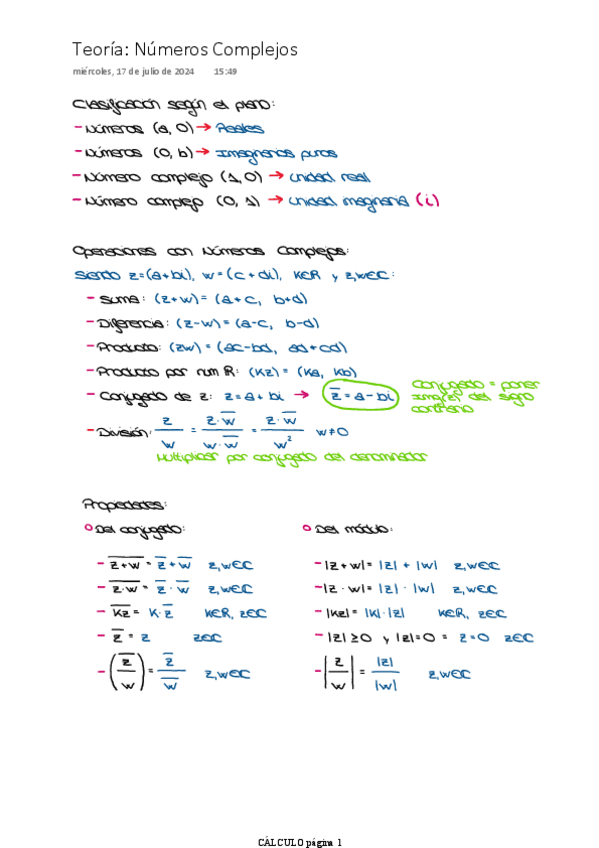 Teoría: Números Complejos
miércoles, 17 de julio de 2024 15:49
Clasificación según el plano:
- Números (a, 0) → Reales
- Números (0, b) → Imaginarios puros
- Número complejo (1, 0) → Unidad real
- Número complejo (0, 1) → Unidad imaginaria (i)
Operaciones con Números Complejos:
Siendo z=(a+bi), w=(c+di), K∈R y z,w∈C:
- Suma: (z+w) = (a+c, b+d)
- Diferencia: (z-w) = (a-c, b-d)
- Producto: (zw) = (ac-bd, ad+cd)
- Producto por num R: (Kz) = (Ka, Kb)
- Conjugado de z: z = a + bi → z̅ = a - bi
Conjugado = poner
Imag(z) del signo
contrario
- División: z/w = z·w̅/w·w̅ = z·w̅/w² w≠0
Multiplicar por conjugado del denominador
Propiedades:
o Del conjugado:
- \overline{z+w} = z̅ + w̅ z,w∈C
- \overline{z·w} = z̅ · w̅ z,w∈C
- \overline{Kz} = K·z̅ K∈R, z∈C
- z̅ = z z∈C
- (z̅/w) = z̅/w̅ z,w∈C
o Del módulo:
- |z + w| = |z| + |w| z,w∈C
- |z · w| = |z| · |w| z,w∈C
- |Kz| = |K|·|z| K∈R, z∈C
- |z| ≥ 0 y |z| = 0 = z = 0 z∈C
- |z/w| = |z|/|w| z,w∈C
CÁLCULO página 1